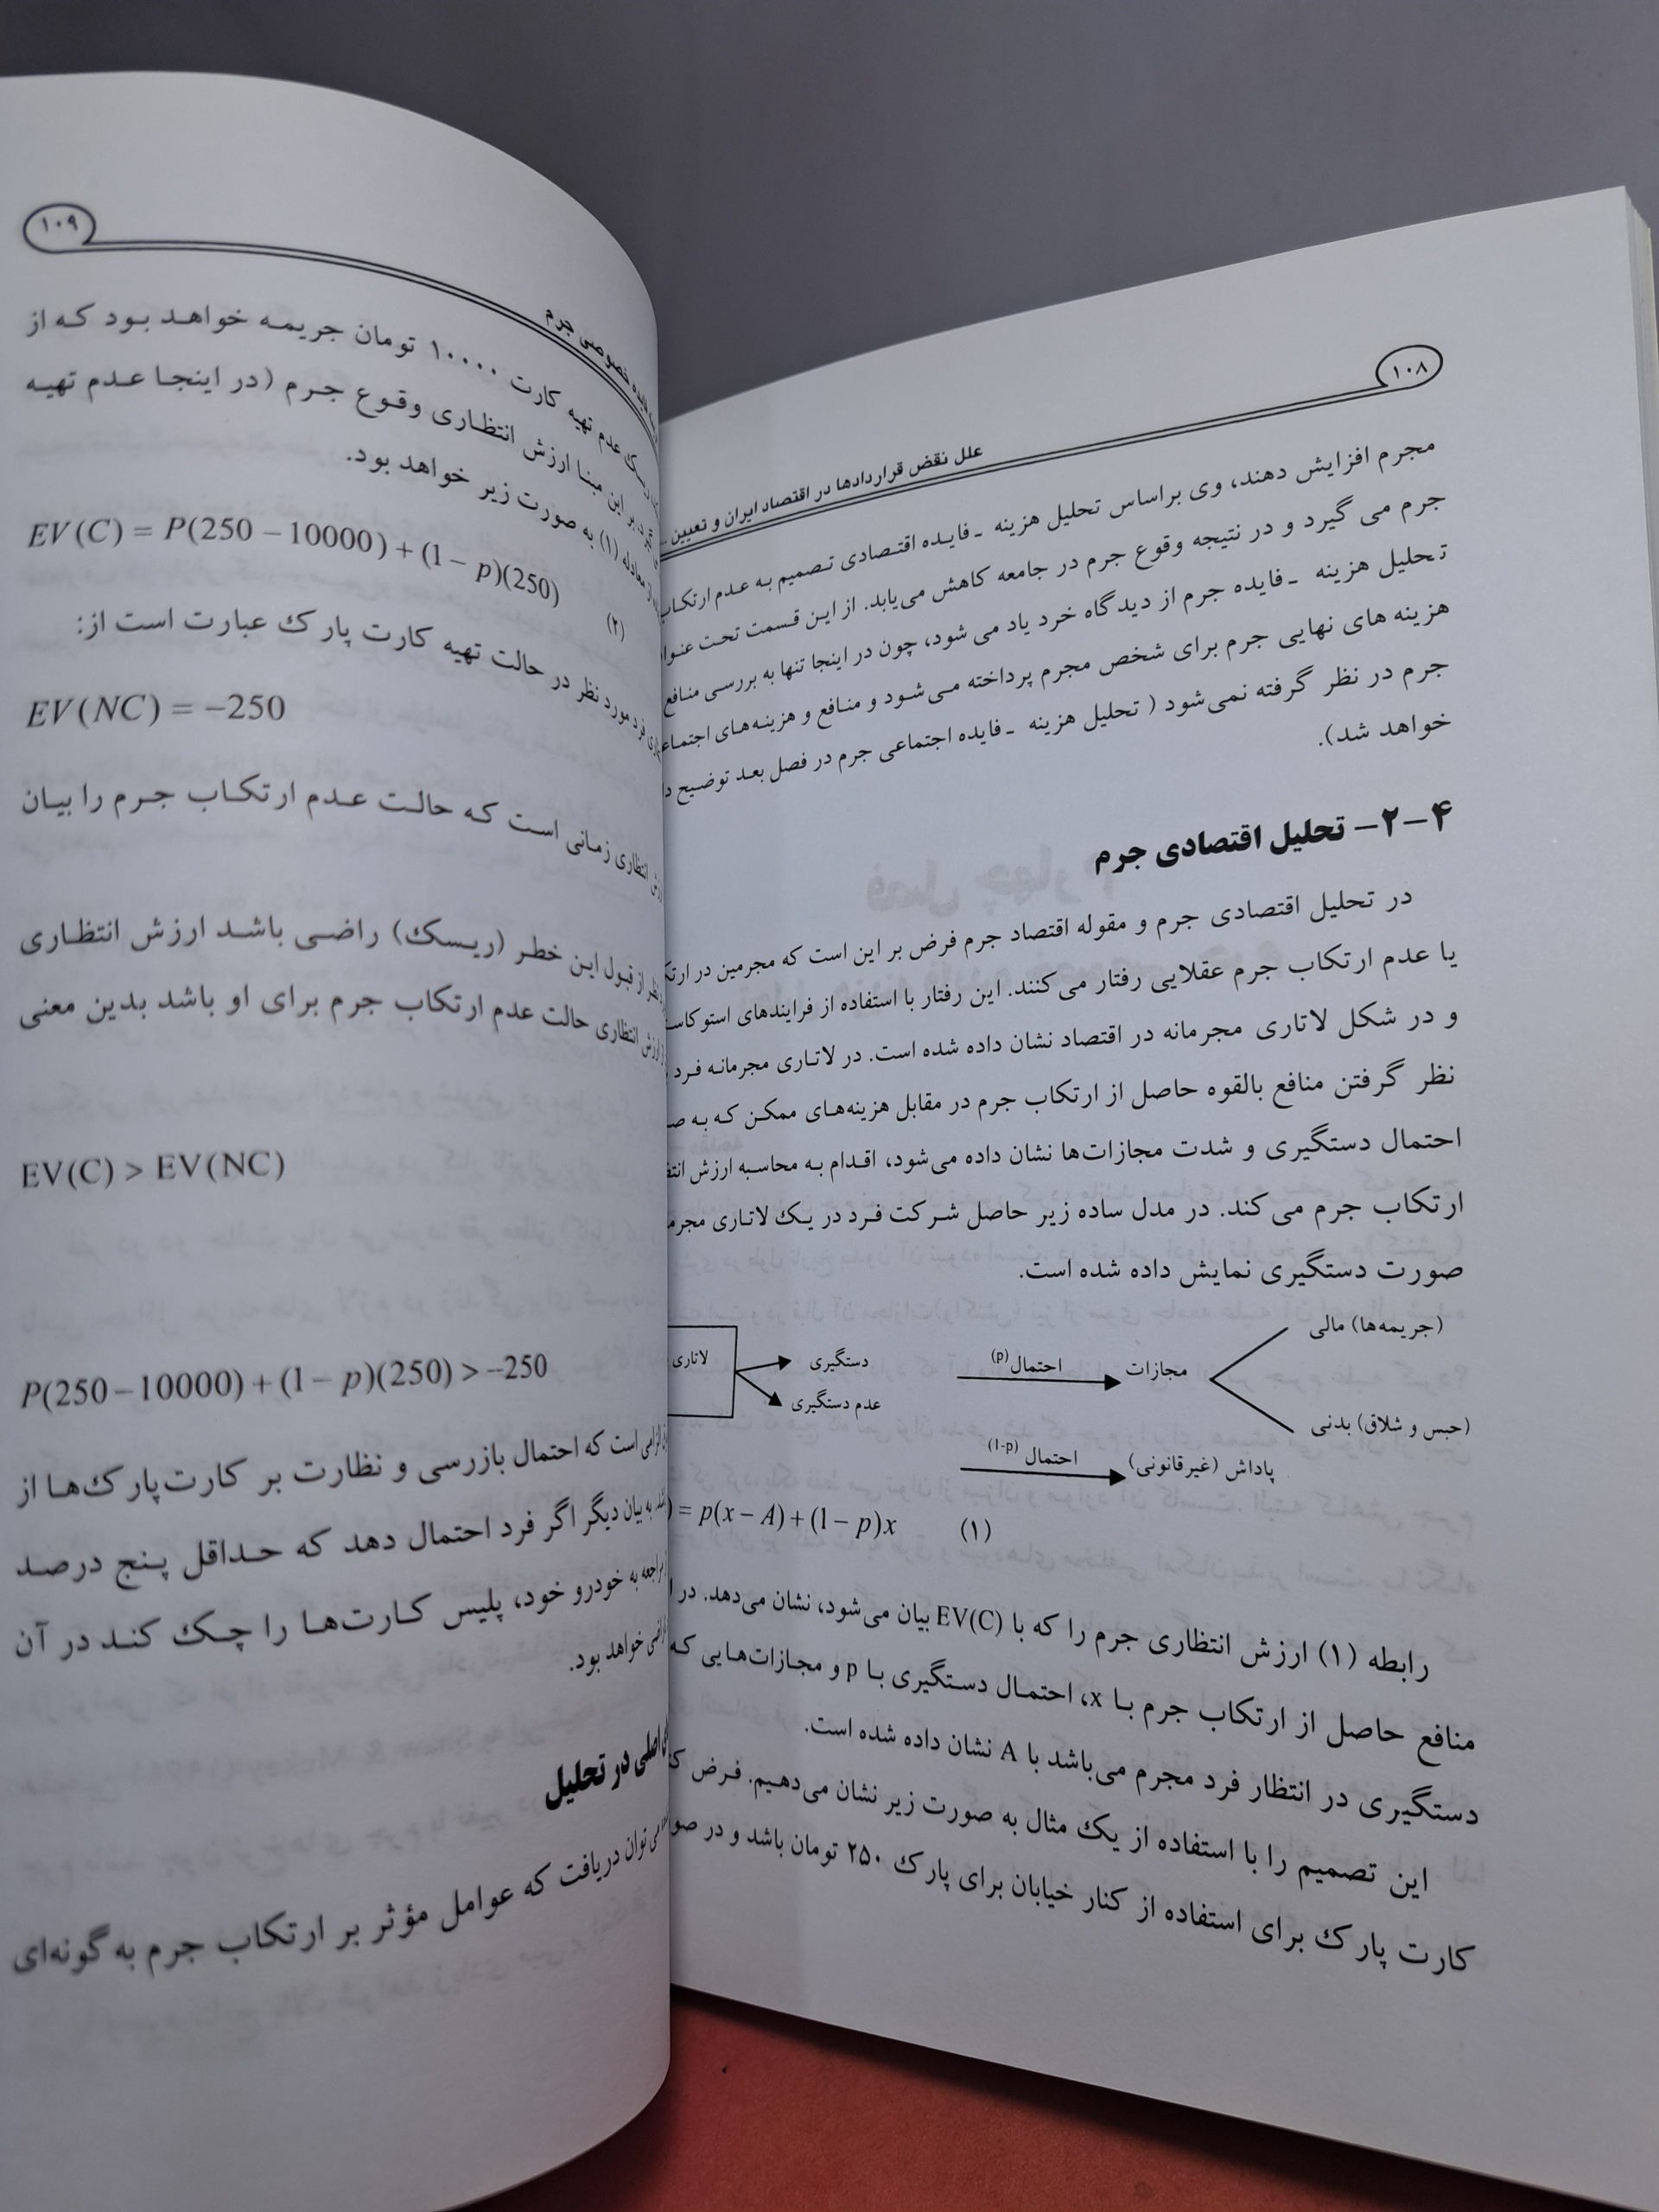 ۱۰۸
علل نقض قراردادها در اقتصاد ایران و تعیین ...
مجرم افزایش دهند، وی براساس تحلیل هزینه ـ فایده اقتصادی تصمیم به عدم ارتکاب
جرم می گیرد و در نتیجه وقوع جرم در جامعه کاهش می‌یابد. از این قسمت تحت
تحلیل هزینه ـ فایده جرم از دیدگاه خرد یاد می شود، چون در اینجا تنها به بررسی منافع
هزینه های نهایی جرم برای شخص مجرم پرداخته می‌شود و منافع و هزینه‌های
جرم در نظر گرفته نمی‌شود ( تحلیل هزینه ـ فایده اجتماعی جرم در فصل بعد توضیح
خواهد شد).
۴-۲- تحلیل اقتصادی جرم
در تحلیل اقتصادی جرم و مقوله اقتصاد جرم فرض بر این است که مجرمین در
یا عدم ارتکاب جرم عقلایی رفتار می‌کنند. این رفتار با استفاده از فرایندهای
و در شکل لاتاری مجرمانه در اقتصاد نشان داده شده است. در لاتاری مجرمانه فرد
نظر گرفتن منافع بالقوه حاصل از ارتکاب جرم در مقابل هزینه‌های ممکن که به
احتمال دستگیری و شدت مجازات‌ها نشان داده می‌شود، اقدام به محاسبه ارزش
ارتکاب جرم می‌کند. در مدل ساده زیر حاصل شرکت فرد در یک لاتاری
صورت دستگیری نمایش داده شده است.
(جریمه‌ها) مالی
لاتاری دستگیری احتمال(p) مجازات
عدم دستگیری
(حبس و شلاق) بدنی
احتمال (1-p) پاداش (غیرقانونی)
= p(x – A) + (1 – p)x (۱)
رابطه (۱) ارزش انتظاری جرم را که با EV(C) بیان می‌شود، نشان می‌دهد. در
منافع حاصل از ارتکاب جرم با x، احتمال دستگیری با p و مجازات‌هایی که
دستگیری در انتظار فرد مجرم می‌باشد با A نشان داده شده است.
این تصمیم را با استفاده از یک مثال به صورت زیر نشان می‌دهیم. فرض
کارت پارک برای استفاده از کنار خیابان برای پارک ۲۵۰ تومان باشد و در
۱۰۹
فایده خصوصی جرم
ریسک عدم تهیه کارت ۱۰۰۰۰ تومان جریمه خواهد بود که از
بر این مبنا ارزش انتظاری وقوع جرم (در اینجا عدم تهیه
از معادله (۱) به صورت زیر خواهد بود.
EV(C) = P(250 – 10000) + (1 – p)(250) (۲)
فرد مورد نظر در حالت تهیه کارت پارک عبارت است از:
EV(NC) = –250
انتظاری زمانی است که حالت عدم ارتکاب جرم را بیان
از قبول این خطر (ریسک) راضی باشد ارزش انتظاری
ارزش انتظاری حالت عدم ارتکاب جرم برای او باشد بدین معنی
EV(C) > EV(NC)
P(250 – 10000) + (1 – p)(250) > –250
است که احتمال بازرسی و نظارت بر کارت‌پارک‌ها از
به بیان دیگر اگر فرد احتمال دهد که حداقل پنج درصد
مراجعه به خودرو خود، پلیس کارت‌ها را چک کند در آن
خواهد بود.
اصلی در تحلیل
می‌توان دریافت که عوامل مؤثر بر ارتکاب جرم به گونه‌ای